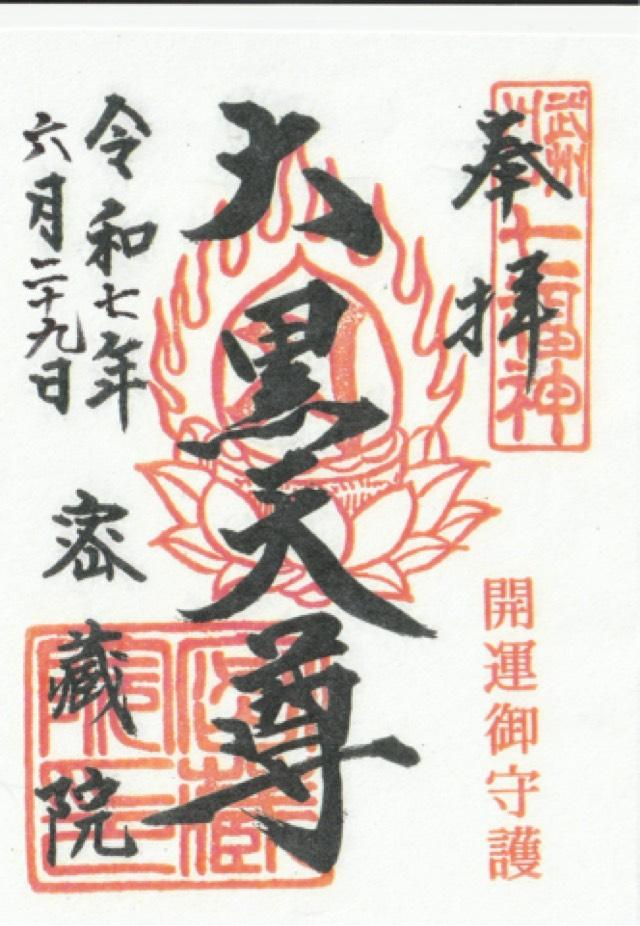 武州川口七福神
奉拝
開運御守護
大黒天尊
令和七年
六月二十九日
密藏院